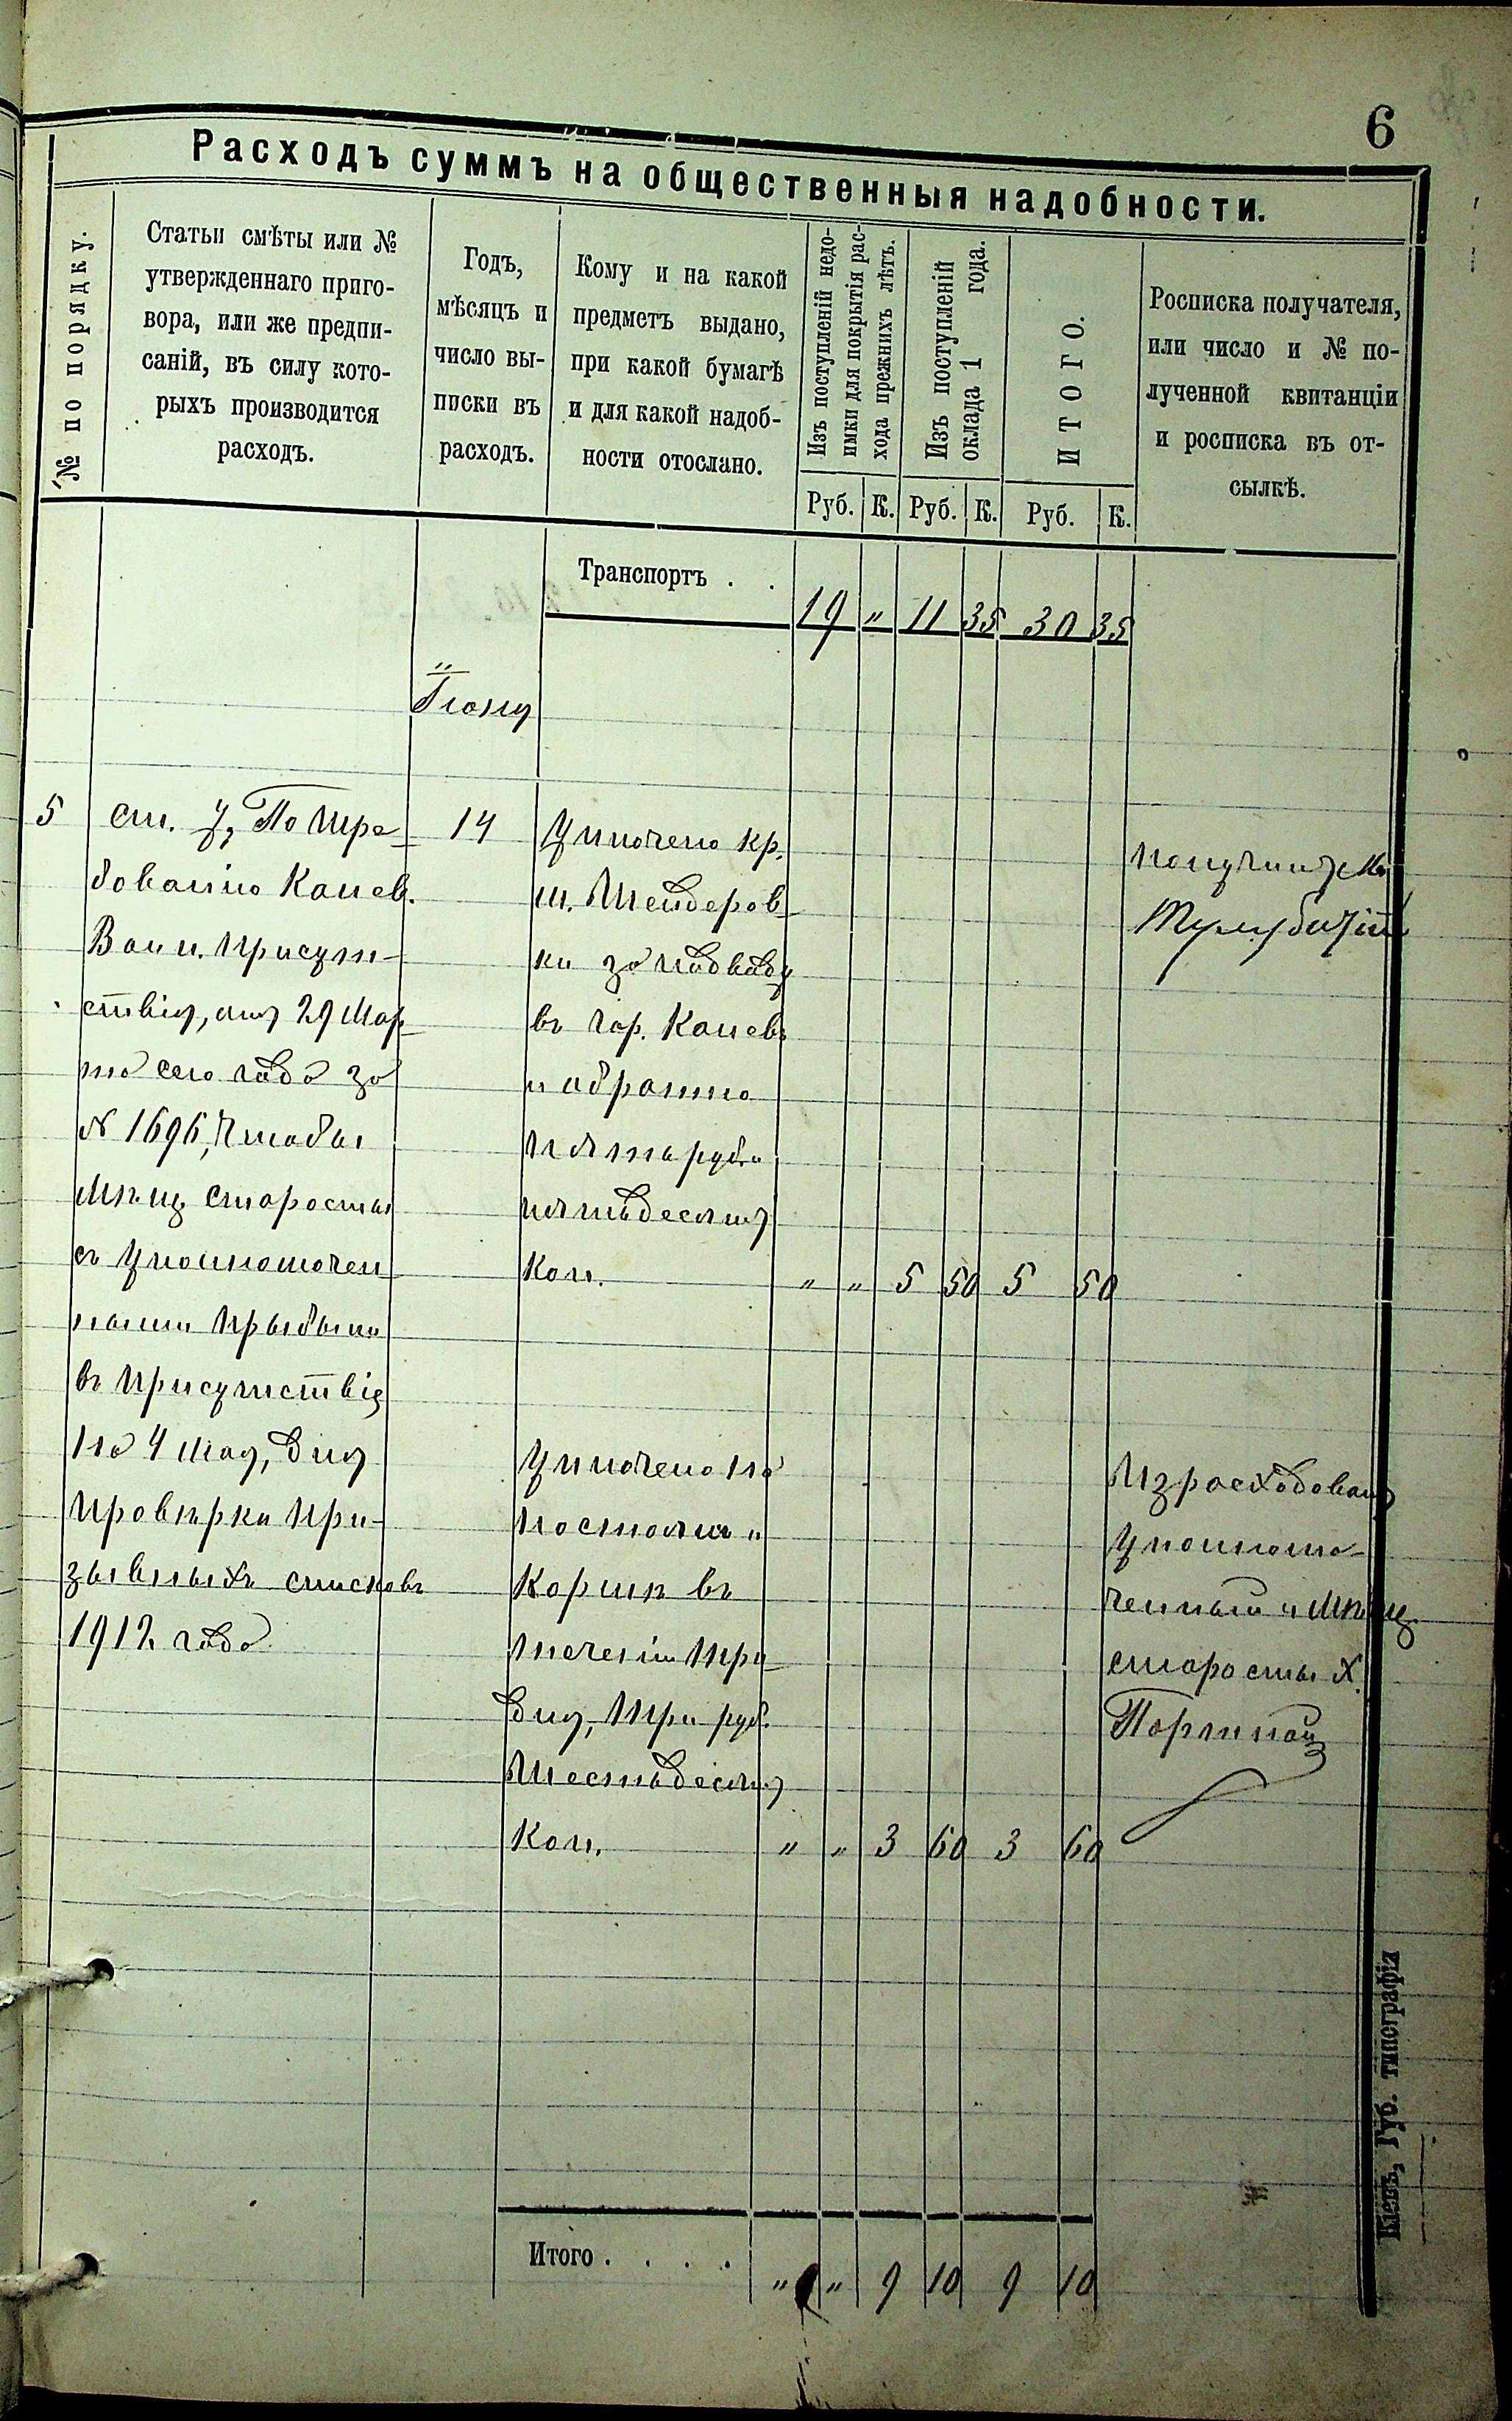 6
Расходъ суммъ на общественныя надобности.
№ по порядку.
Статьи смѣты или №
утвержденнаго приго-
вора, или же предпи-
саній, въ силу кото-
рыхъ производится
расходъ.
Годъ,
мѣсяцъ и
число вы-
писки въ
расходъ.
Кому и на какой
предметъ выдано,
при какой бумагѣ
и для какой надоб-
ности отослано.
Изъ поступленій недо-
имки для покрытія рас-
хода прежнихъ лѣтъ.
Изъ поступленій
оклада 1 года.
ИТОГО.
Росписка получателя,
или число и № по-
лученной квитанціи
и росписка въ от-
сылкѣ.
Руб. К. Руб. К. Руб. К.
Транспортъ . .
19 „ 11 35 30 35
5
ст. 7, По тре-
бованію Канев.
Воин. присут-
ствія, отъ 29 Мар-
та сего года за
№ 1696, чтобы
Мѣщ. старосты
съ уполномочен-
ными прыбыли
въ присутствіе
на 4 мая, для
провѣрки при-
зывныхъ списковъ
1912 года
14
Уплочено кр.
м. Шендеров-
ки за подводу
въ гор. Каневъ
и обратно
пять руб. и
пятьдесятъ
коп.
„ „ 5 50 5 50
получилъ М.
Уплочено на
постоялы и
кормъ въ
теченіи трі
дня, три руб.
шестьдесятъ
коп.
„ „ 3 60 3 60
Израсходовалъ
уполномо-
ченный и Мѣщ.
старосты Х.
Портной
Итого . . . .
„ „ 9 10 9 10
Кіевъ, Губ. типографія